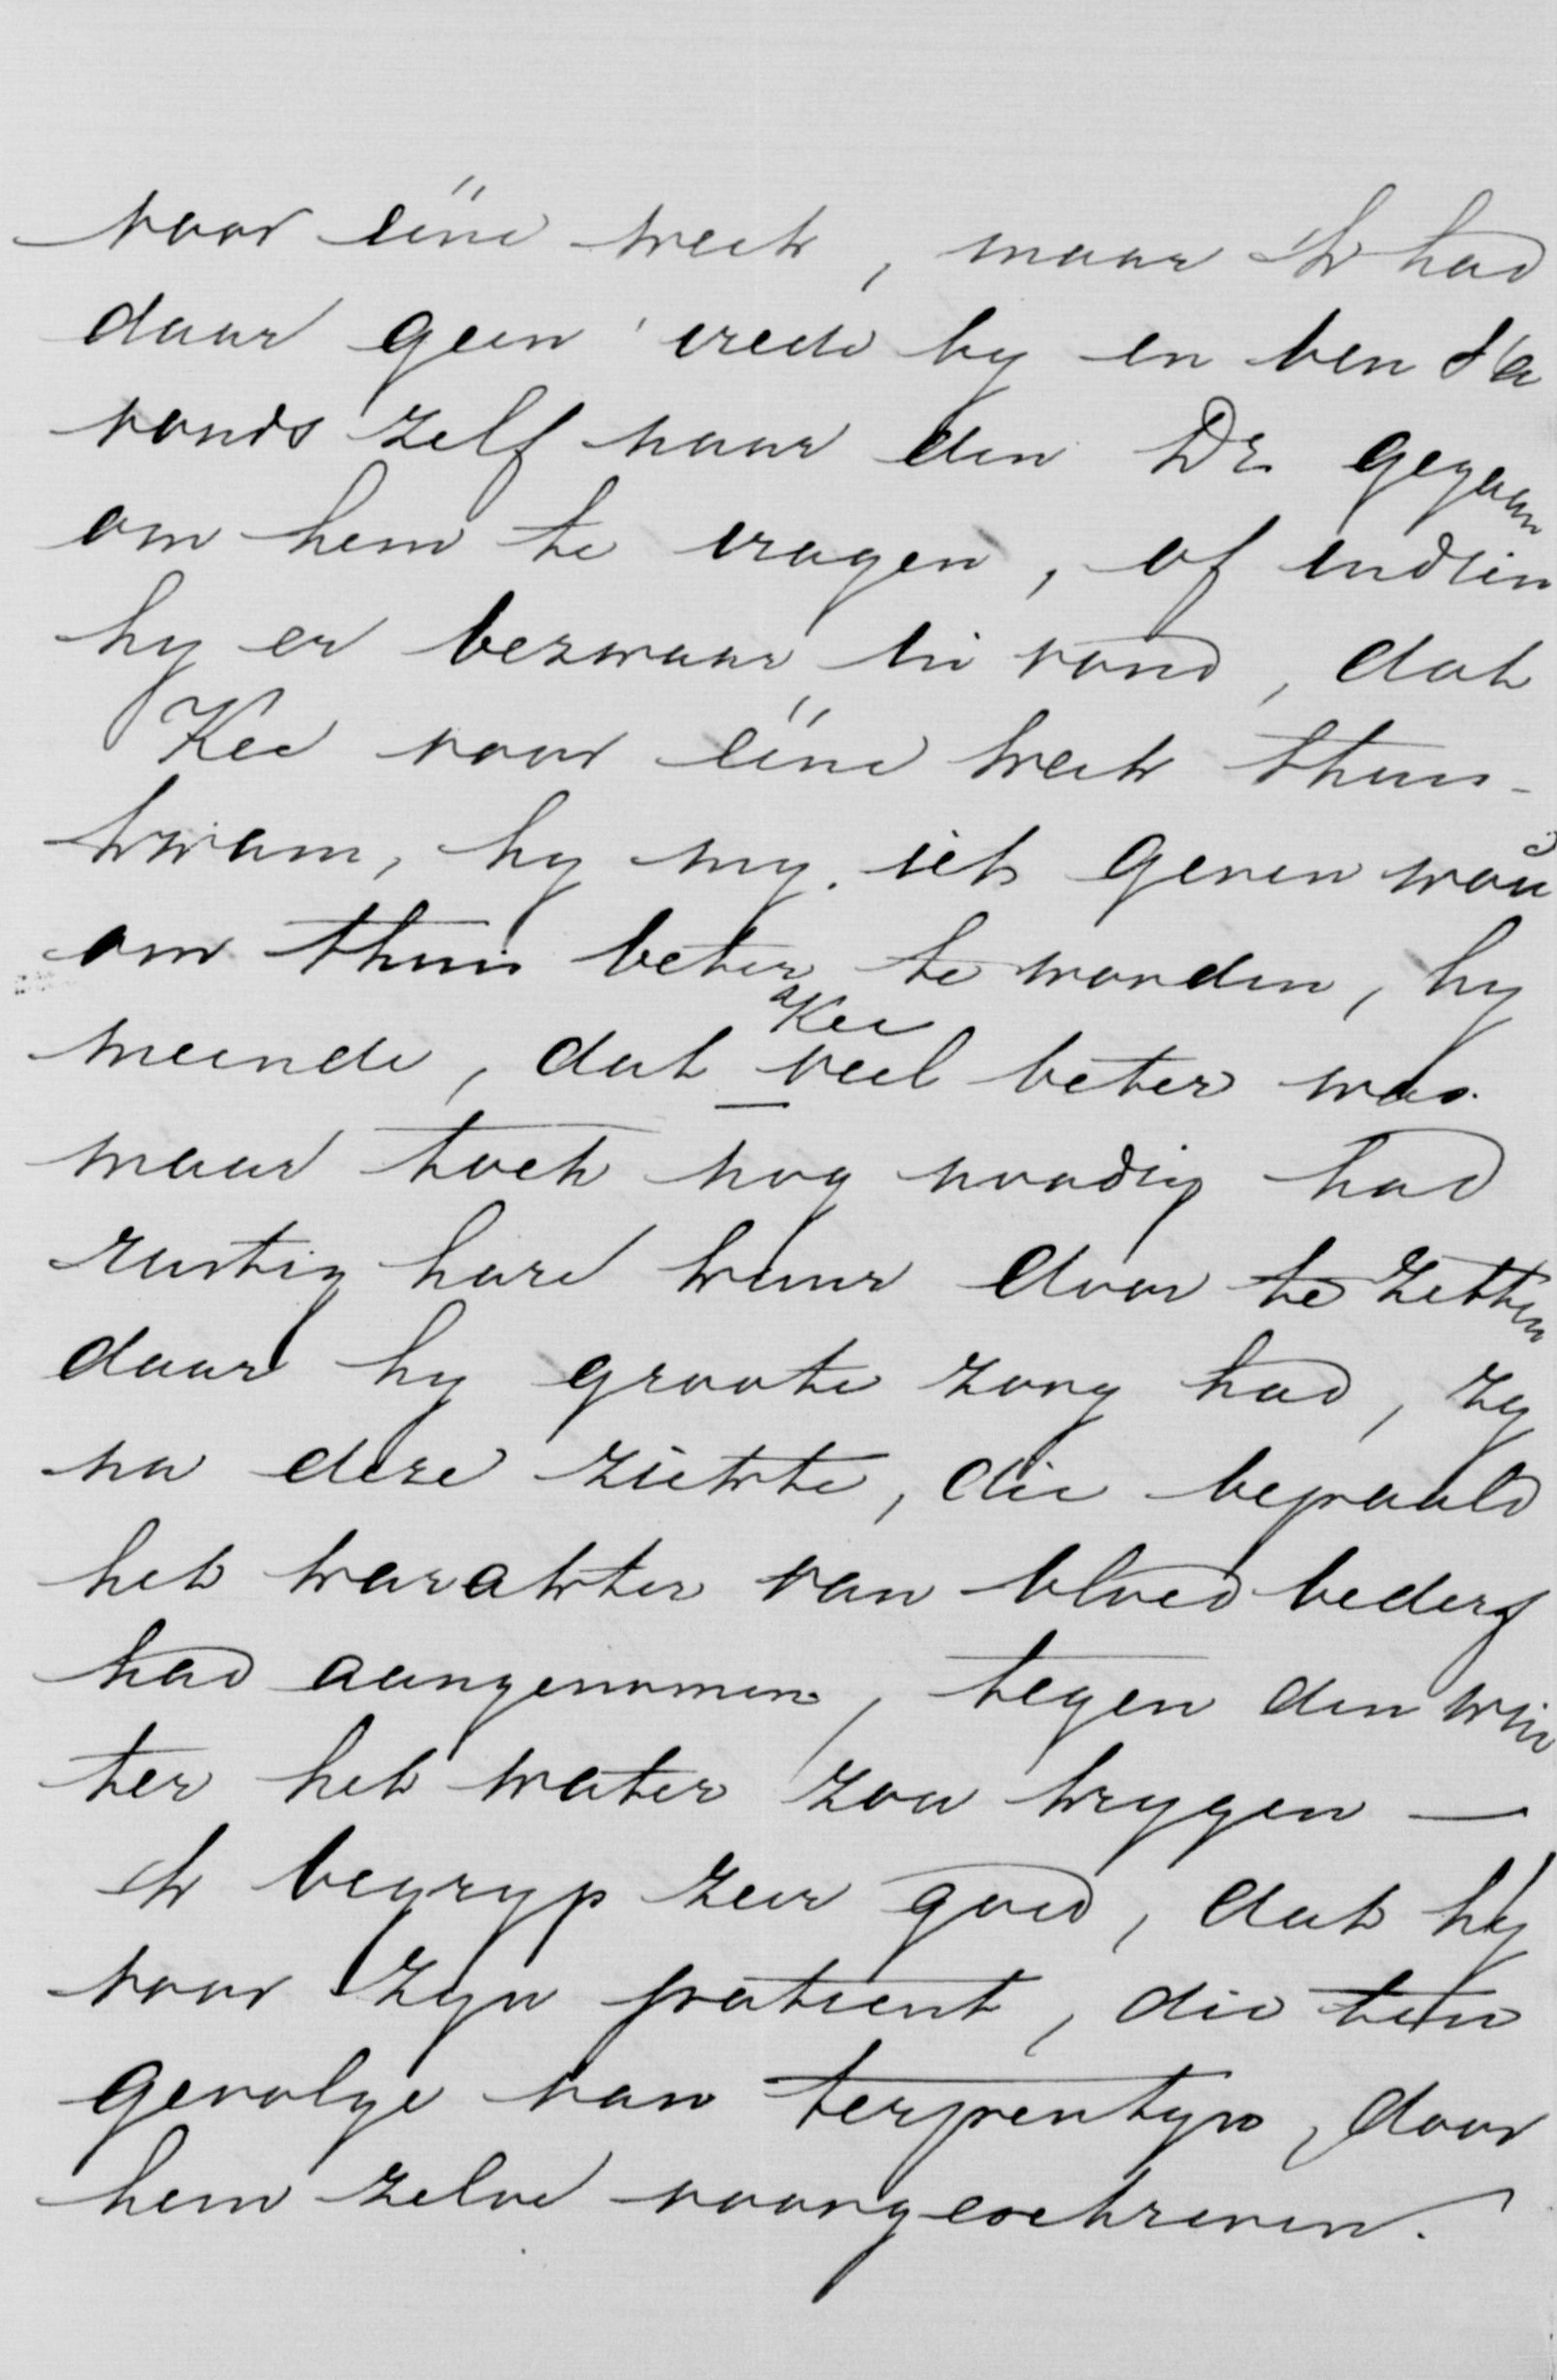 voor ééne week, maar ik had
daar geen vrede by en ben s'a
vonds zelf naar den Dr. gegaan
om hem te vragen, of indien
hy er bezwaar in vond, dat
Kee voor ééne week thuis-
kwam, hy my iets geven wou
om thuis beter te worden, hy
meende, dat Kee veel beter was
maar toch nog noodig had
rustig hare kuur door te zetten
daar hy groote zorg had, zy
na deze ziekte, die bepaald
het karakter van bloedbederf
had aangenomen, tegen den win
ter het water zou krygen —
Ik begryp zeer goed, dat hy
voor zyn patient, die ten
gevolge van terpentyn, door
hem zelve voorgeschreven.